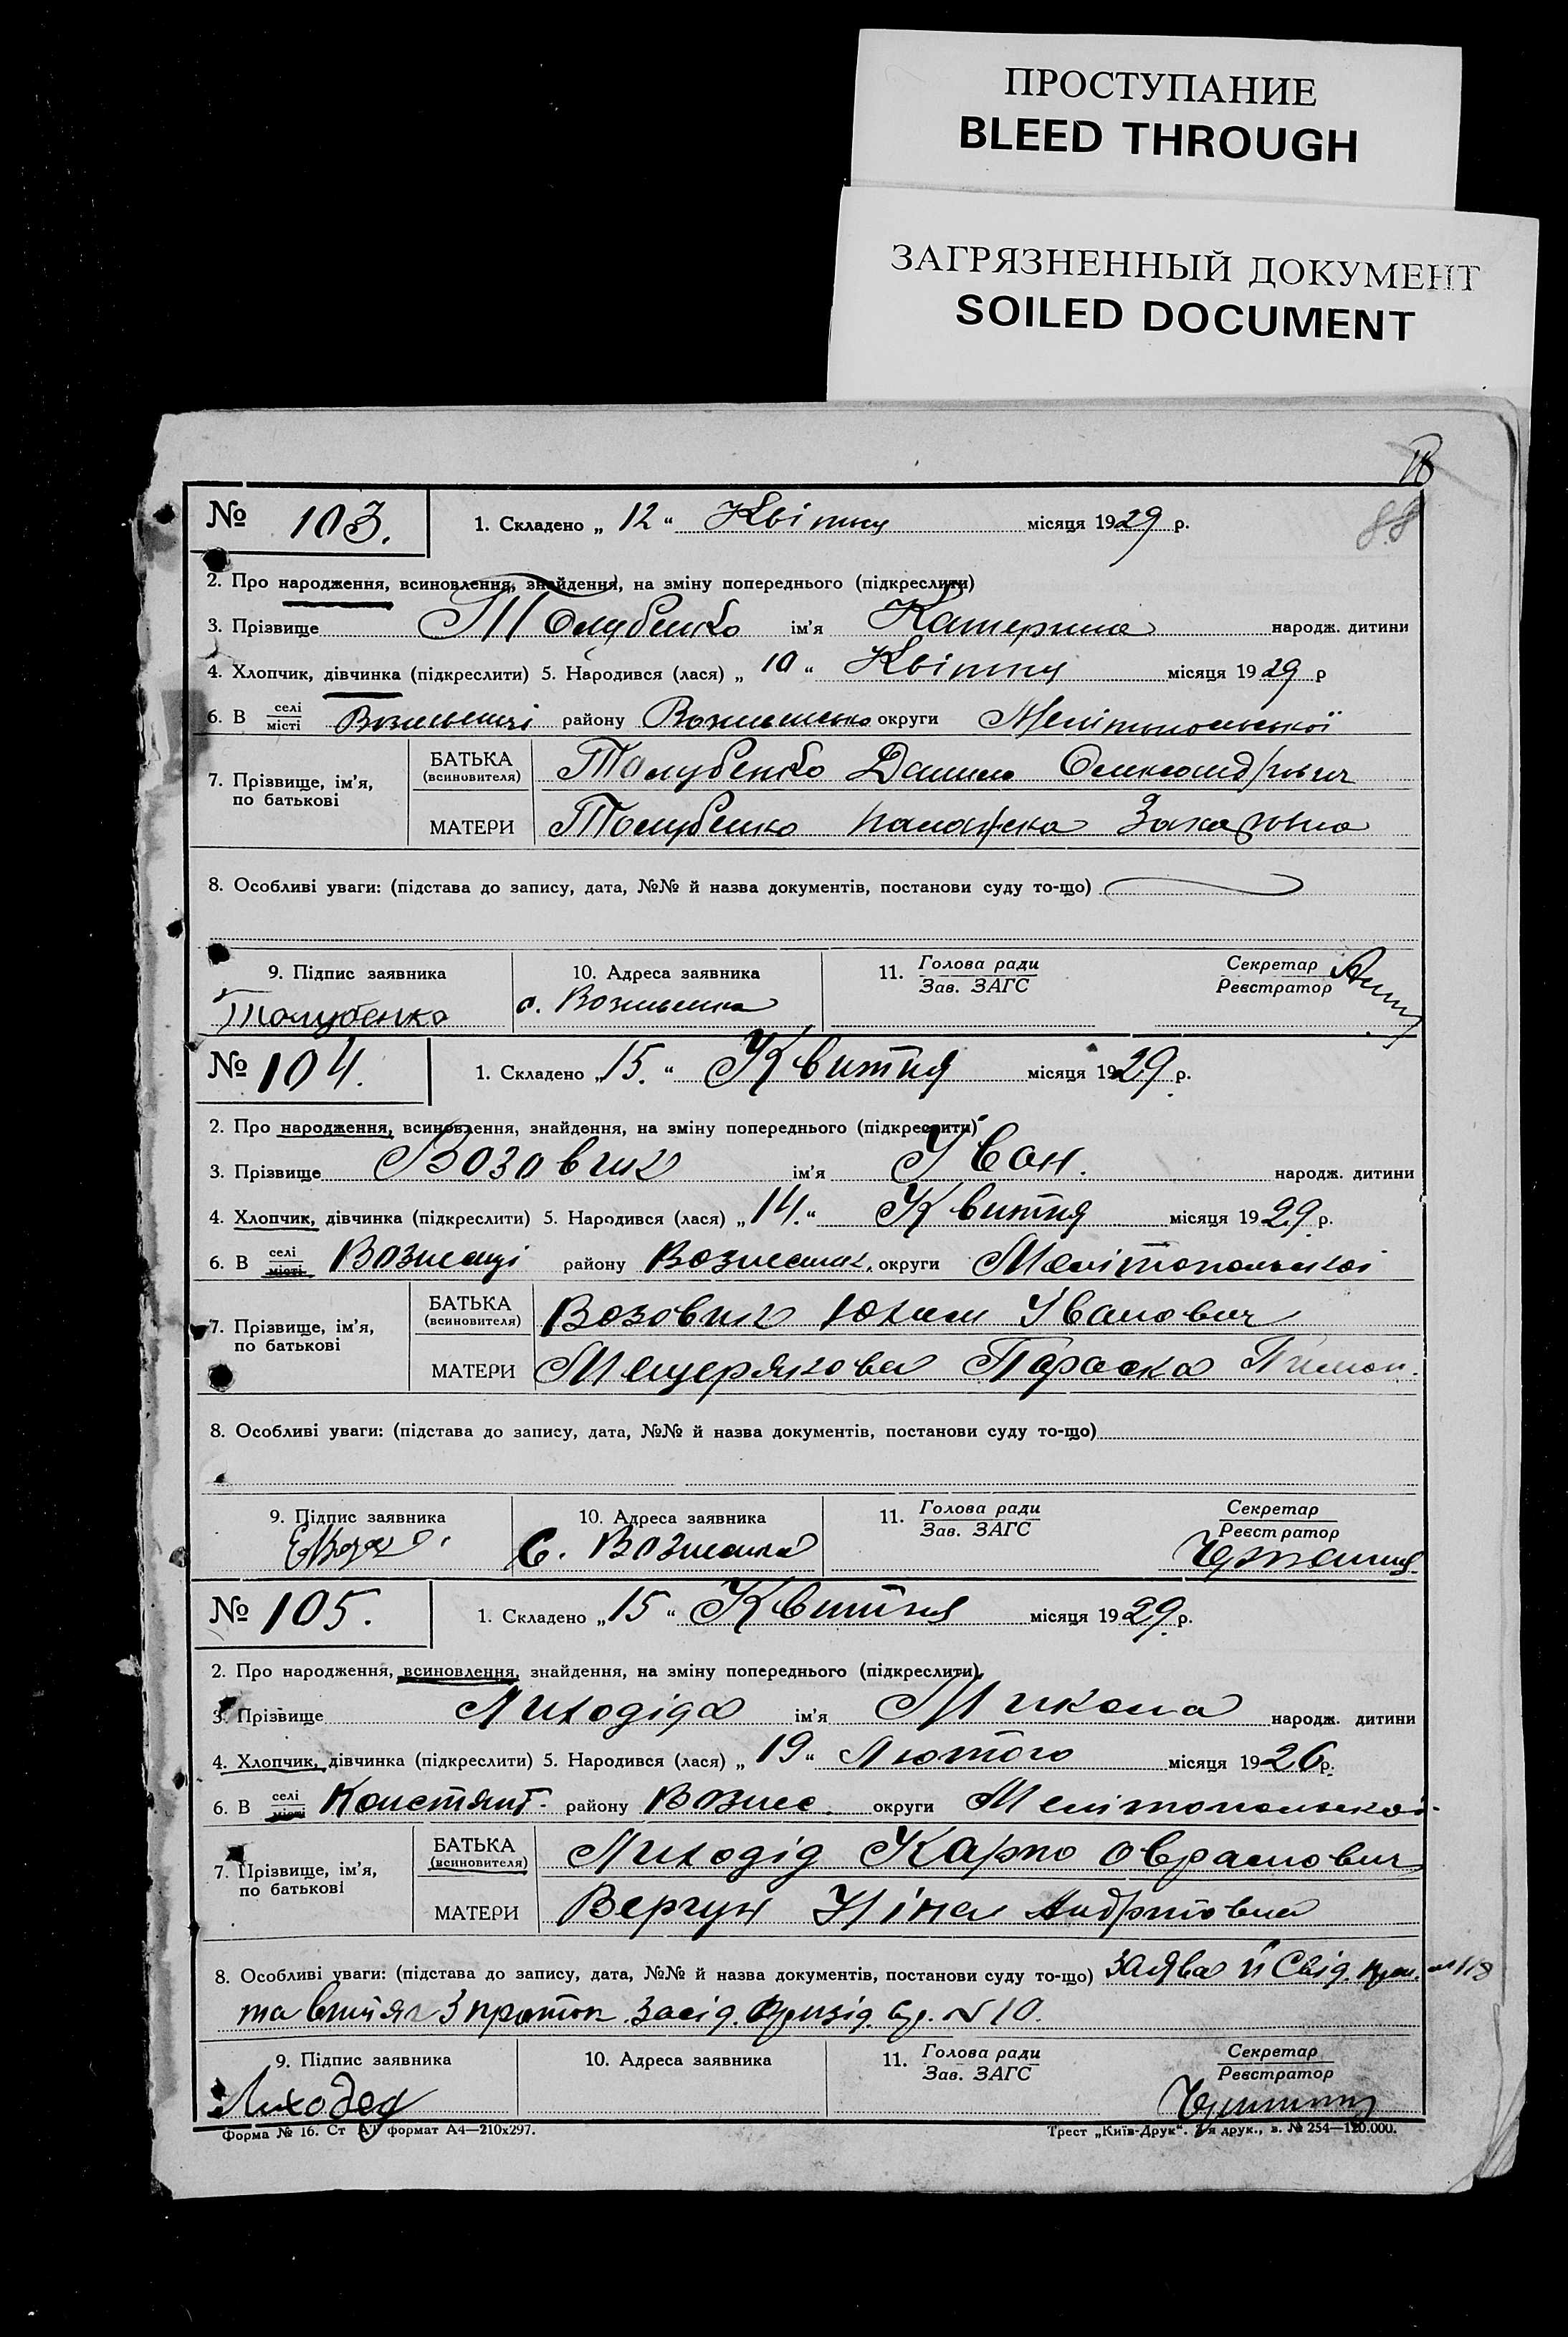 ПРОСТУПАНИЕ
BLEED THROUGH
ЗАГРЯЗНЕННЫЙ ДОКУМЕНТ
SOILED DOCUMENT
88
№ 103. 1. Складено „ 12 “ Квітня місяця 1929 р.
2. Про народження, всиновлення, знайдення, на зміну попереднього (підкреслити)
3. Прізвище Толубенко ім’я Катерина народж. дитини
4. Хлопчик, дівчинка (підкреслити) 5. Народився (лася) „ 10 “ Квітня місяця 1929 р
6. В селі/місті Вознесенці району округи Мелітопольської
7. Прізвище, ім’я, по батькові
БАТЬКА (всиновителя) Толубенко Данило Олександрович
МАТЕРИ Толубенко Палажка Захаровна
8. Особливі уваги: (підстава до запису, дата, №№ й назва документів, постанови суду то-що)
9. Підпис заявника 10. Адреса заявника 11. Голова ради/Зав. ЗАГС Секретар/Реєстратор
Толубенко с. Вознесенка
№ 104. 1. Складено „ 15. “ Квитня місяця 1929 р.
2. Про народження, всиновлення, знайдення, на зміну попереднього (підкреслити)
3. Прізвище Возовик ім’я Іван. народж. дитини
4. Хлопчик, дівчинка (підкреслити) 5. Народився (лася) „ 14. “ Квитня місяця 1929 р.
6. В селі/місті Вознесенці району Вознесенк. округи Мелітопольскоі
7. Прізвище, ім’я, по батькові
БАТЬКА (всиновителя) Возовик Юхим Іванович
МАТЕРИ Мещерякова Параска Пимон.
8. Особливі уваги: (підстава до запису, дата, №№ й назва документів, постанови суду то-що)
9. Підпис заявника 10. Адреса заявника 11. Голова ради/Зав. ЗАГС Секретар/Реєстратор
С. Вознесенка
№ 105. 1. Складено „ 15 “ Квитня місяця 1929 р.
2. Про народження, всиновлення, знайдення, на зміну попереднього (підкреслити)
3. Прізвище Лиходіда ім’я Микола народж. дитини
4. Хлопчик, дівчинка (підкреслити) 5. Народився (лася) „ 19 “ Лютого місяця 1926 р.
6. В селі/місті Констянт. району Вознес. округи Мелітопольскоі
7. Прізвище, ім’я, по батькові
БАТЬКА (всиновителя) Лиходід Карпо Оврамович
МАТЕРИ Вергун Ніна
8. Особливі уваги: (підстава до запису, дата, №№ й назва документів, постанови суду то-що) Заява й Свід.
та витяг з проток. засід. Презид. №10.
9. Підпис заявника 10. Адреса заявника 11. Голова ради/Зав. ЗАГС Секретар/Реєстратор
Лиходед
Форма № 16. Ст АТ формат А4—210х297. Трест „Київ-Друк“. друк., з. № 254—120.000.